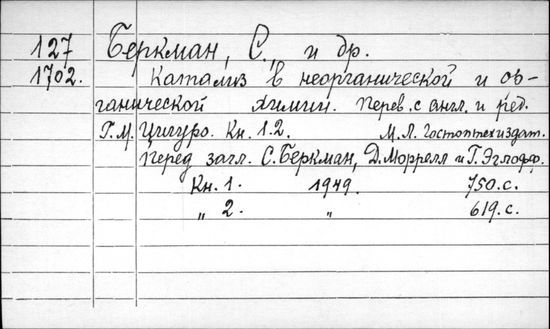 127 Беркман, С., и др.
1702. Катализ в неорганической и ор-
ганической химии. Перев. с англ. и ред.
Г.М. Цигуро. Кн. 1.2. М.Л. Гостоптехиздат.
Перед загл. С. Беркман, Д. Моррелл и Г. Эглофф.
Кн. 1. 1949. 750. с.
„ 2. „ 619. с.